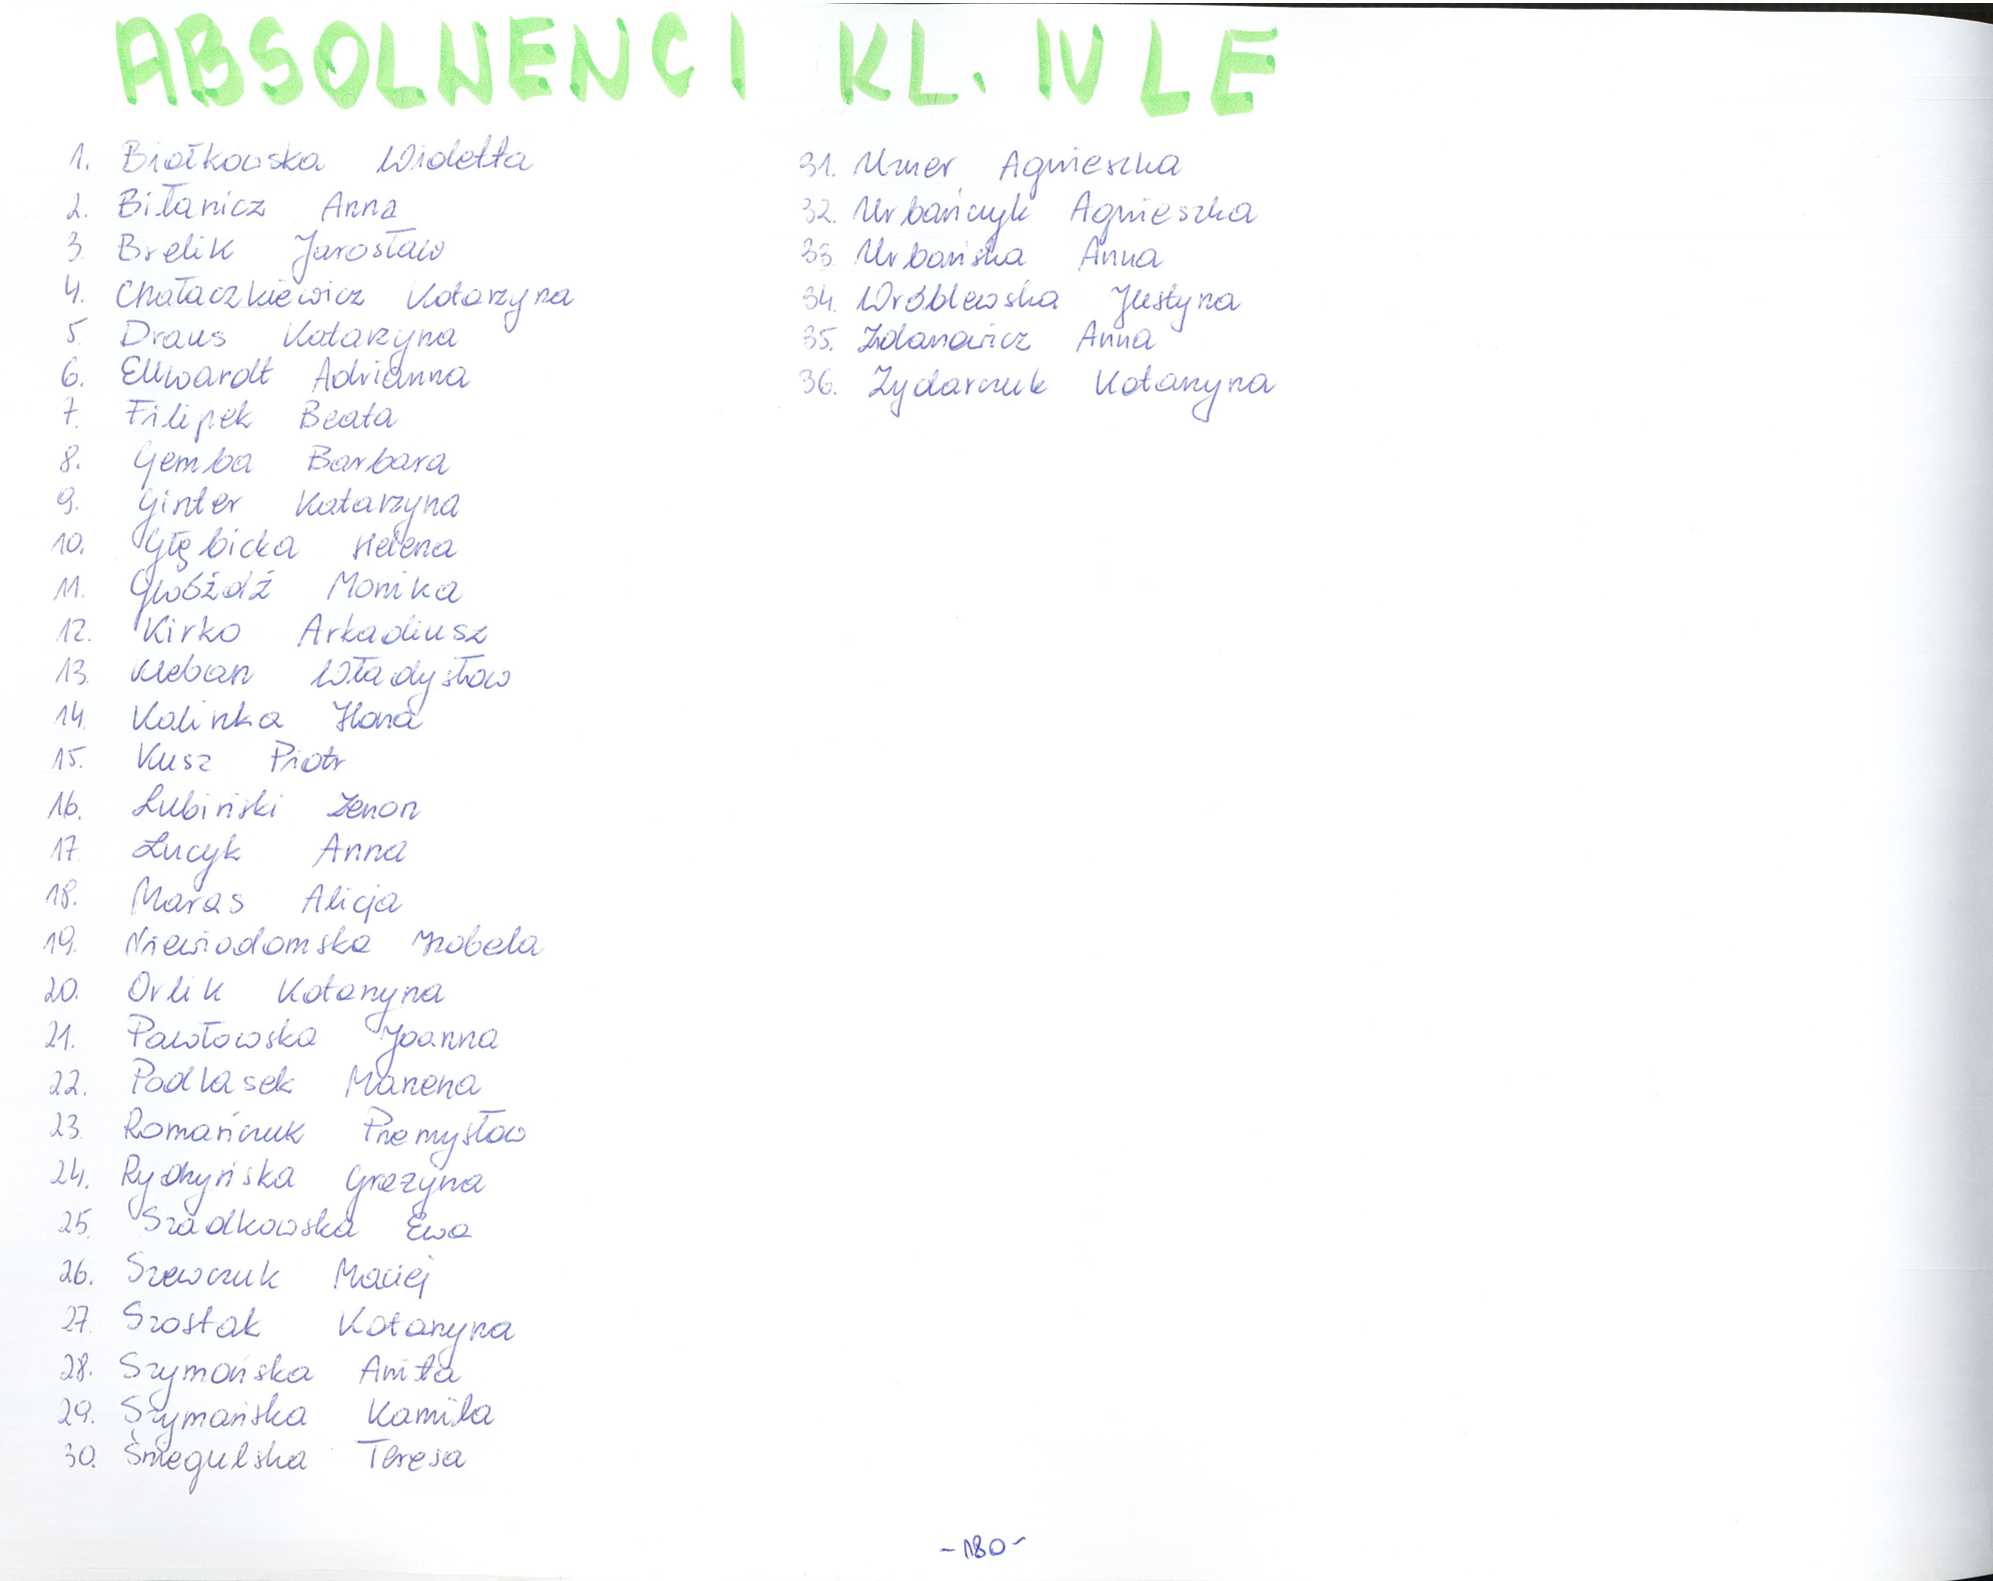 ABSOLWENCI KL. IV LE
1. Białkowska Wioletta
2. Biłanicz Anna
3. Brelik Jarosław
4. Chałaczkiewicz Katarzyna
5. Draus Katarzyna
6. Ellwardt Adrianna
7. Filipek Beata
8. Gemba Barbara
9. Ginter Katarzyna
10. Głębicka Helena
11. Gwóźdź Monika
12. Kirko Arkadiusz
13. Kleban Władysław
14. Kalinka Ilona
15. Kusz Piotr
16. Lubiński Zenon
17. Łucyk Anna
18. Maras Alicja
19. Niewiadomska Izabela
20. Orlik Katarzyna
21. Pawłowska Joanna
22. Podlasek Marzena
23. Romańczuk Przemysław
24. Rychyńska Grażyna
25. Szadkowska Ewa
26. Szewczuk Maciej
27. Szostak Katarzyna
28. Szymańska Anita
29. Szymańska Kamila
30. Śmiegulska Teresa
31. Umer Agnieszka
32. Urbańczyk Agnieszka
33. Urbańska Anna
34. Wróblewska Justyna
35. Zdanowicz Anna
36. Zydarczuk Katarzyna
-180-